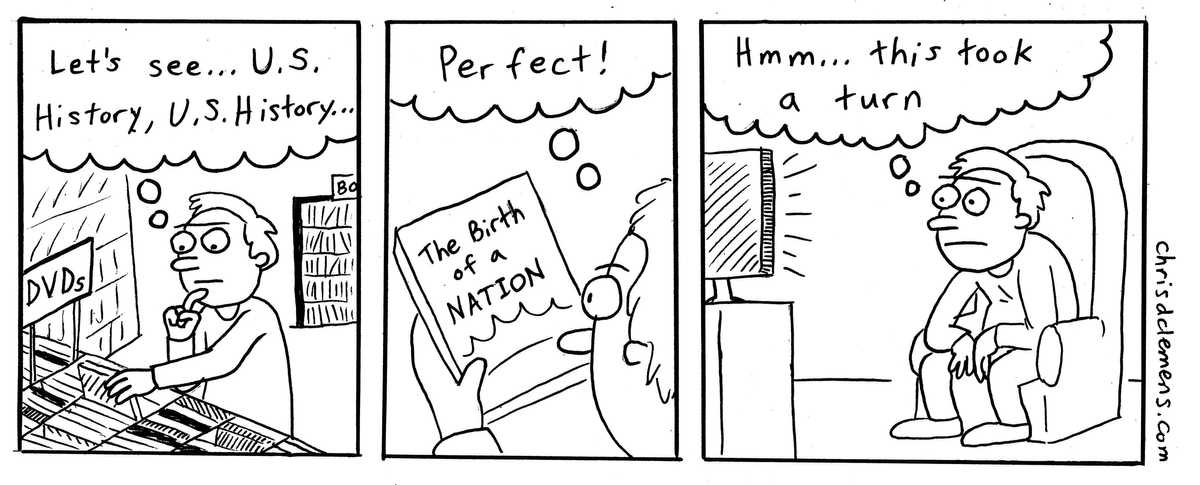 Let's see... U.S.
History, U.S. History...
DVDs
BO
Perfect!
The Birth
of a
NATION
Hmm... this took
a turn
chrisdclemens.com